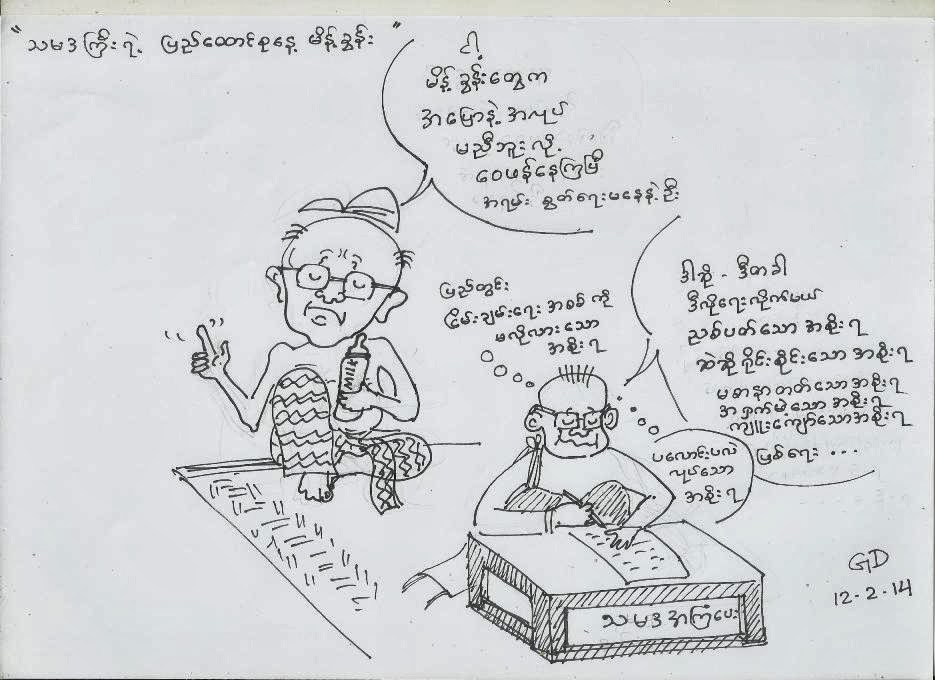 "သမဒကြီးရဲ့ ပြည်ထောင်စုနေ့ မိန့်ခွန်း"
ငါ့
မိန့်ခွန်းတွေက
အပြောနဲ့ အလုပ်
မညီဘူးလို့
ဝေဖန်နေကြပြီ
အရမ်း လွှတ်ရေးမနေနဲ့ဦး
ပြည်တွင်း
ငြိမ်းချမ်းရေး အစစ်ကို
မလိုလားသော
အစိုးရ
ဒါဆို - ဒီတခါ
ဒီလိုရေးလိုက်မယ်
ညစ်ပတ်သော အစိုးရ
ဆဲဆိုရိုင်းစိုင်းသော အစိုးရ
မစာနာတတ်သော အစိုးရ
အရှက်မဲ့သော အစိုးရ
ကျူးကျော်သောအစိုးရ
ဖြစ်ရေး ...
ပလောင်းပလဲ
လုပ်သော
အစိုးရ
GD
12-2-14
သမဒအကြံပေး